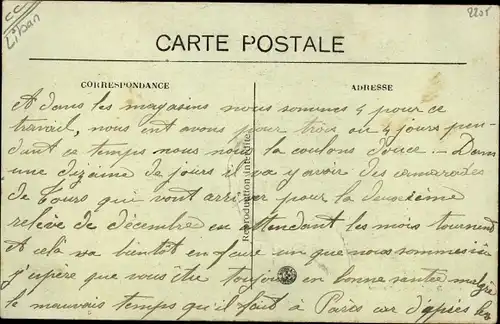 CC
Liban
2205
CARTE POSTALE
CORRESPONDANCE
ADRESSE
Reproduction interdite
A dans les magasins nous sommes 4 pour ce
travail, nous ent avons pour trois ou 4 jours pen-
dant ce temps nous nous la coulons douce — Dans
une dizaine de jours il va y avoir des camarades
de Tours qui vont arriver pour la deuxième
relève de décembre en attendant les mois tournent
et cela va bientôt en faire un que nous sommes
j'espère que vous êtes toujours en bonne santé malgré
le mauvais temps qu'il fait à Paris car d'après les